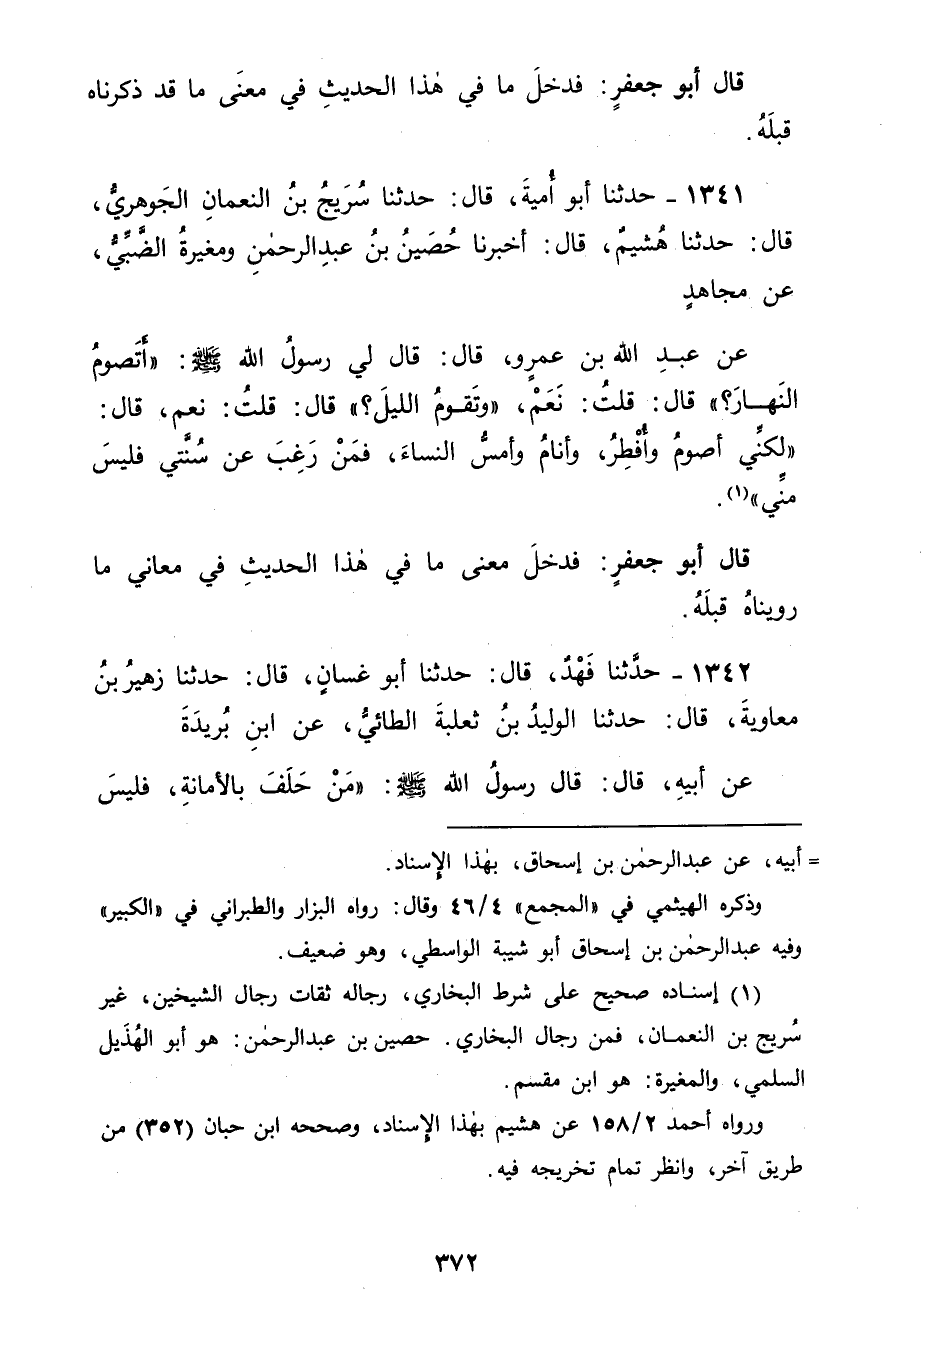 قال أبو جعفرٍ: فدخلَ ما في هٰذا الحديثِ في معنَى ما قد ذكرناه
قبلَهُ.
١٣٤١ - حدثنا أبو أُميةَ، قال: حدثنا سُرَيجُ بنُ النعمانِ الجَوهريُّ،
قال: حدثنا هُشيمٌ، قال: أخبرنا حُصَينُ بنُ عبدِالرحمٰنِ ومغيرةُ الضَّبِّيُّ،
عن مجاهدٍ
عن عبـدِ الله بن عمرٍو، قال: قال لي رسولُ الله ﷺ: «أَتَصومُ
النَهـارَ؟» قال: قلتُ: نَعَمْ، «وتَقـومُ الليلَ؟» قال: قلتُ: نعم، قال:
«لكنِّي أصومُ وأُفْطِرُ، وأنامُ وأمسُّ النساءَ، فمَنْ رَغِبَ عن سُنَّتي فليسَ
منِّي»(١).
قال أبو جعفرٍ: فدخلَ معنى ما في هٰذا الحديثِ في معاني ما
رويناهُ قبلَهُ.
١٣٤٢ - حدَّثنا فَهْدٌ، قال: حدثنا أبو غسانٍ، قال: حدثنا زهيرُ بنُ
معاويةَ، قال: حدثنا الوليدُ بنُ ثعلبةَ الطائيُّ، عن ابنِ بُريدَةَ
عن أبيهِ، قال: قال رسولُ الله ﷺ: «مَنْ حَلَفَ بالأمانةِ، فليسَ
= أبيه، عن عبدالرحمٰن بن إسحاق، بهٰذا الإسناد.
وذكره الهيثمي في «المجمع» ٤٦/٤ وقال: رواه البزار والطبراني في «الكبير»
وفيه عبدالرحمٰن بن إسحاق أبو شيبة الواسطي، وهو ضعيف.
(١) إسنـاده صحيح على شرط البخاري، رجاله ثقات رجال الشيخين، غير
سُريج بن النعمـان، فمن رجال البخاري. حصين بن عبدالرحمٰن: هو أبو الهُذَيل
السلمي، والمغيرة: هو ابن مقسم.
ورواه أحمد ١٥٨/٢ عن هشيم بهٰذا الإسناد، وصححه ابن حبان (٣٥٢) من
طريق آخر، وانظر تمام تخريجه فيه.
٣٧٢